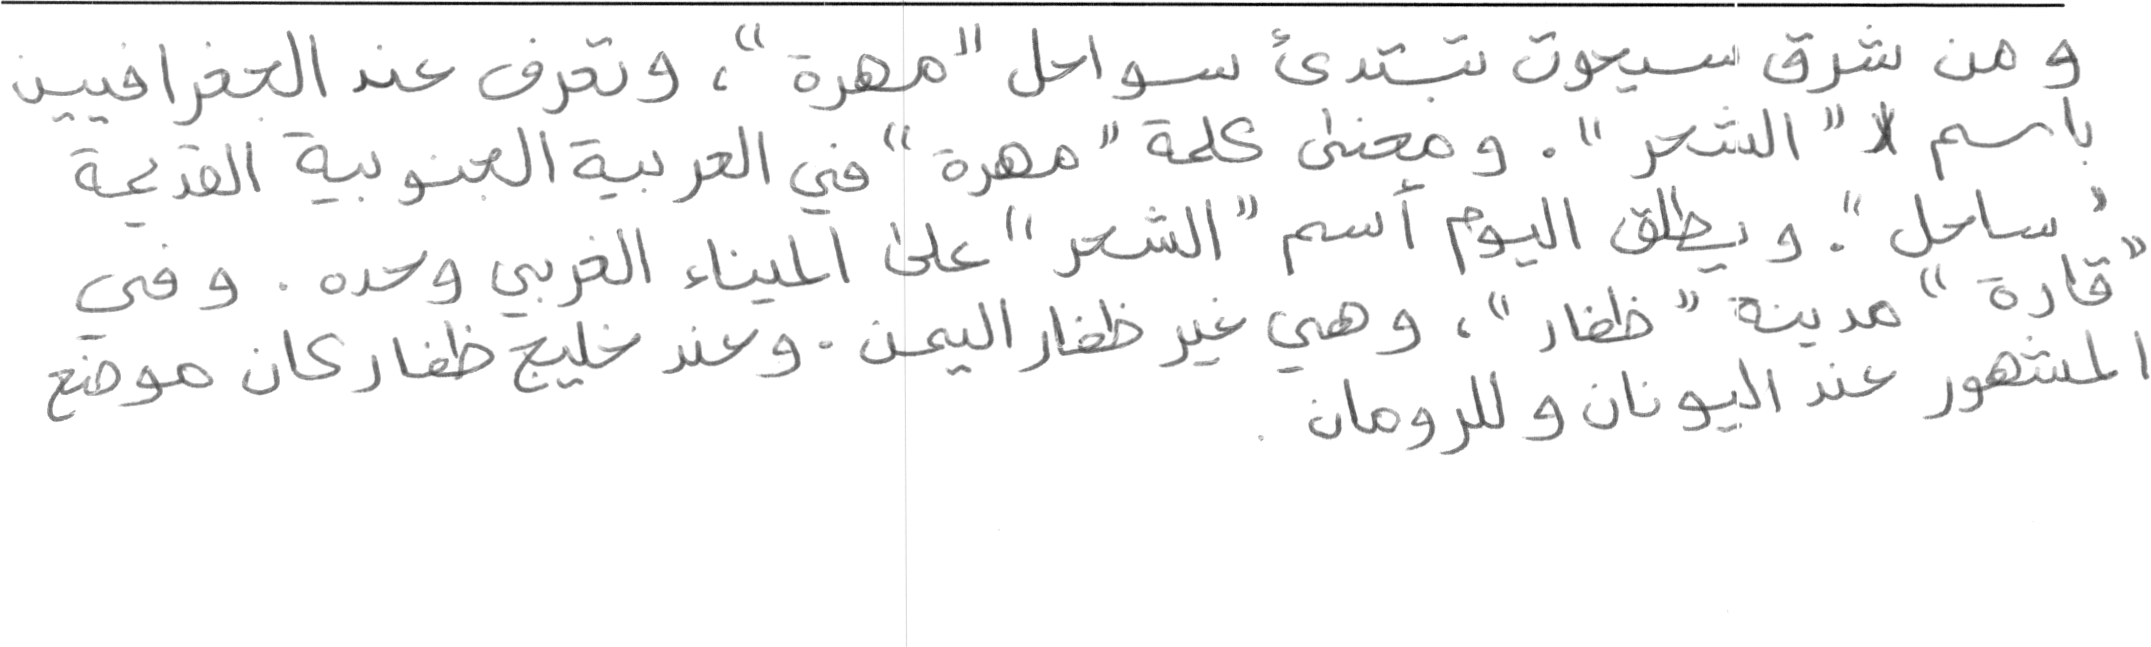 ومن شرق سيحوت تبتدئ سواحل "مهرة"، وتعرف عند الجغرافيين
باسم "الشحر". ومعنى كلمة "مهرة" في العربية الجنوبية القديمة
"ساحل". ويطلق اليوم أسم "الشحر" على الميناء الغربي وحده. وفي
"قارة" مدينة "ظفار"، وهي غير ظفار اليمن. وعند خليج ظفار كان موضع
المشهور عند اليونان وللرومان.